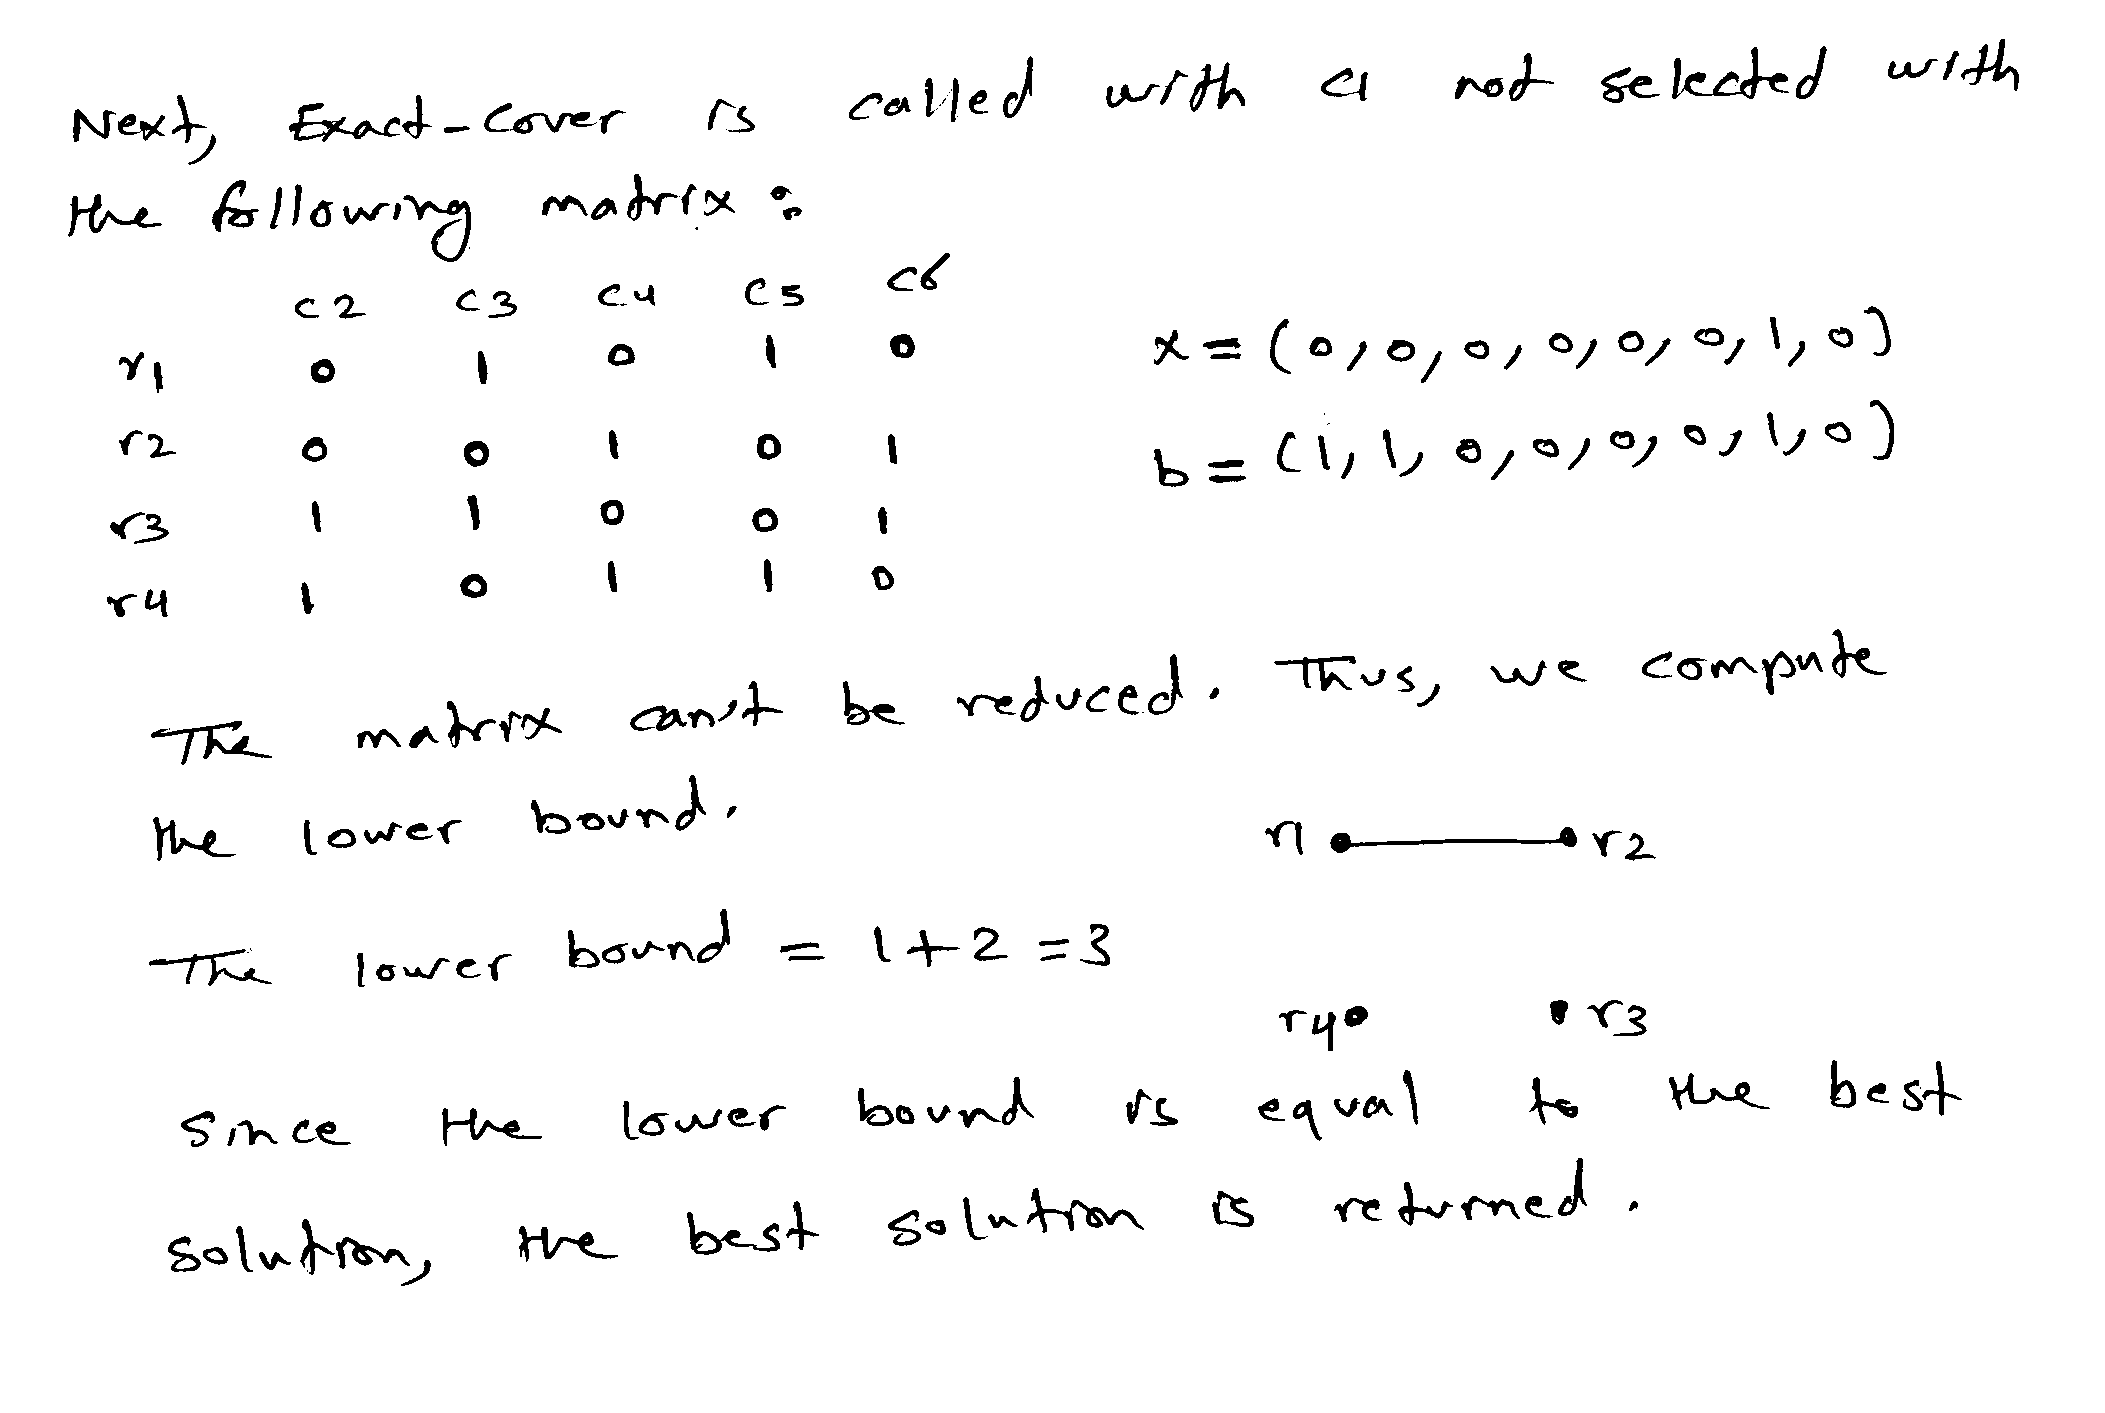 Next, Exact-Cover is called with c1 not selected with
the following matrix:
c2 c3 c4 c5 c6
r1 0 1 0 1 0 x = (0,0,0,0,0,0,1,0)
r2 0 0 1 0 1 b = (1,1,0,0,0,0,1,0)
r3 1 1 0 0 1
r4 1 0 1 1 0
The matrix can't be reduced. Thus, we compute
the lower bound.
r1 r2
The lower bound = 1+2 = 3
r4 r3
Since the lower bound is equal to the best
solution, the best solution is returned.